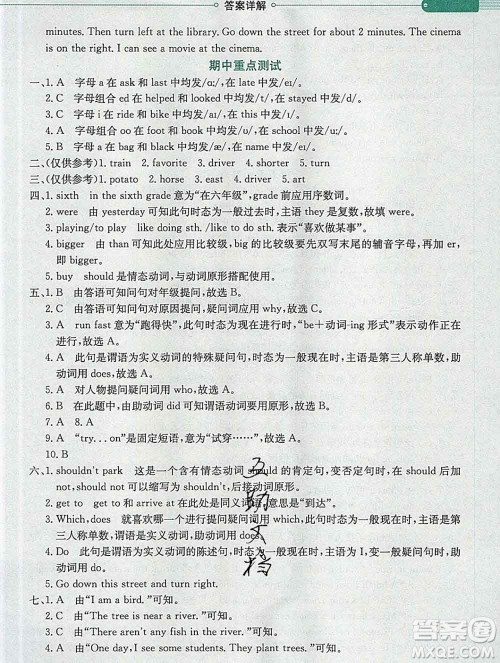 答案详解
minutes. Then turn left at the library. Go down the street for about 2 minutes. The cinema
is on the right. I can see a movie at the cinema.
期中重点测试
一、1. A 字母 a 在 ask 和 last 中均发/ɑː/,在 late 中发/eɪ/。
2. C 字母组合 ed 在 helped 和 looked 中均发/t/,在 stayed 中发/d/。
3. C 字母 i 在 ride 和 bike 中均发/aɪ/,在 driver 中发/aɪ/。
4. A 字母组合 oo 在 foot 和 book 中均发/ʊ/,在 school 中发/uː/。
5. B 字母 a 在 bag 和 black 中均发/æ/,在 baby 中发/eɪ/。
二、(仅供参考)1. train 2. favorite 3. driver 4. shorter 5. turn
三、(仅供参考)1. potato 2. horse 3. river 4. driver 5. art
四、1. sixth in the sixth grade 意为“在六年级”,grade 前应用序数词。
2. were 由 yesterday 可知此句时态为一般过去时,主语 they 是复数,故填 were。
3. playing/to play like doing sth. = like to do sth. 表示“喜欢做某事”。
4. bigger 由 than 可知此处应用比较级,big 的比较级要先双写末尾的辅音字母,再加 er,
即 bigger。
5. buy should 是情态动词,与动词原形搭配使用。
五、1. B 由答语可知问句对年级提问,故选 B。
2. B 由答语可知问句对原因提问,疑问词应用 why,故选 B。
3. A run fast 意为“跑得快”,此句时态为现在进行时,应用“be+动词-ing 形式”表示,
故选 A。
4. A 此句是谓语为实义动词的特殊疑问句,时态为一般现在时,主语是第三人称单数,助
动词用 does,故选 A。
5. A 对人物提问疑问词用 who,故选 A。
6. B 在此题中,由助动词 did 可知谓语动词要用原形,故选 B。
7. A 8. A
9. A “try...on”是固定短语,意为“试穿……”,故选 A。
10. B
六、1. shouldn't park 这是一个含有情态动词 should 的肯定句,变否定句时,在 should 后加
not,should not 可以缩写为 shouldn't,后接动词原形。
2. get to get to 和 arrive at 在此处是同义词语,意思是“到达”。
3. Which, does 就喜欢哪一个进行提问疑问词用 which,此句时态为一般现在时,主语是第
三人称单数,谓语为实义动词,故助动词用 does。
4. Do 此句是谓语为实义动词的陈述句,时态为一般现在时,变一般疑问句时,句首加助
动词 do。
5. Go down this street and turn right.
七、1. A 由“I am a river.”可知。
2. B 由“The tree is near a river.”可知。
3. B 由“There aren't any fish in the river.”可知。
4. A 由“One day, I see some students. They plant trees.”可知。
互
助
文
档
答案圈
MXQE.COM